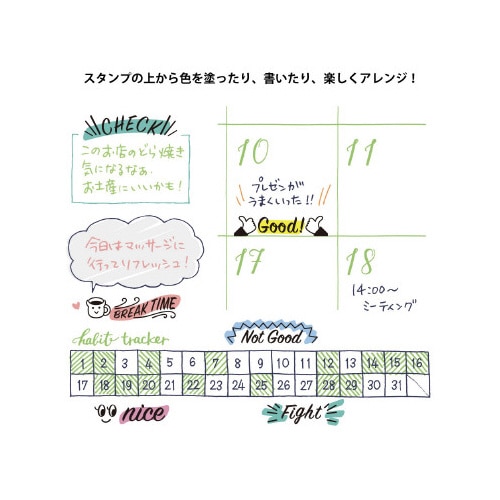 スタンプの上から色を塗ったり、書いたり、楽しくアレンジ！
CHECK
このお店のどら焼き
気になるなぁ
お土産にいいかも！
10
11
プレゼンが
うまくいった!!
Good!
今日はマッサージに
行ってリフレッシュ！
BREAK TIME
17
18
14:00〜
ミーティング
habit tracker
Not Good
1 2 3 4 5 6 7 8 9 10 11 12 13 14 15 16
17 18 19 20 21 22 23 24 25 26 27 28 29 30 31
nice
Fight